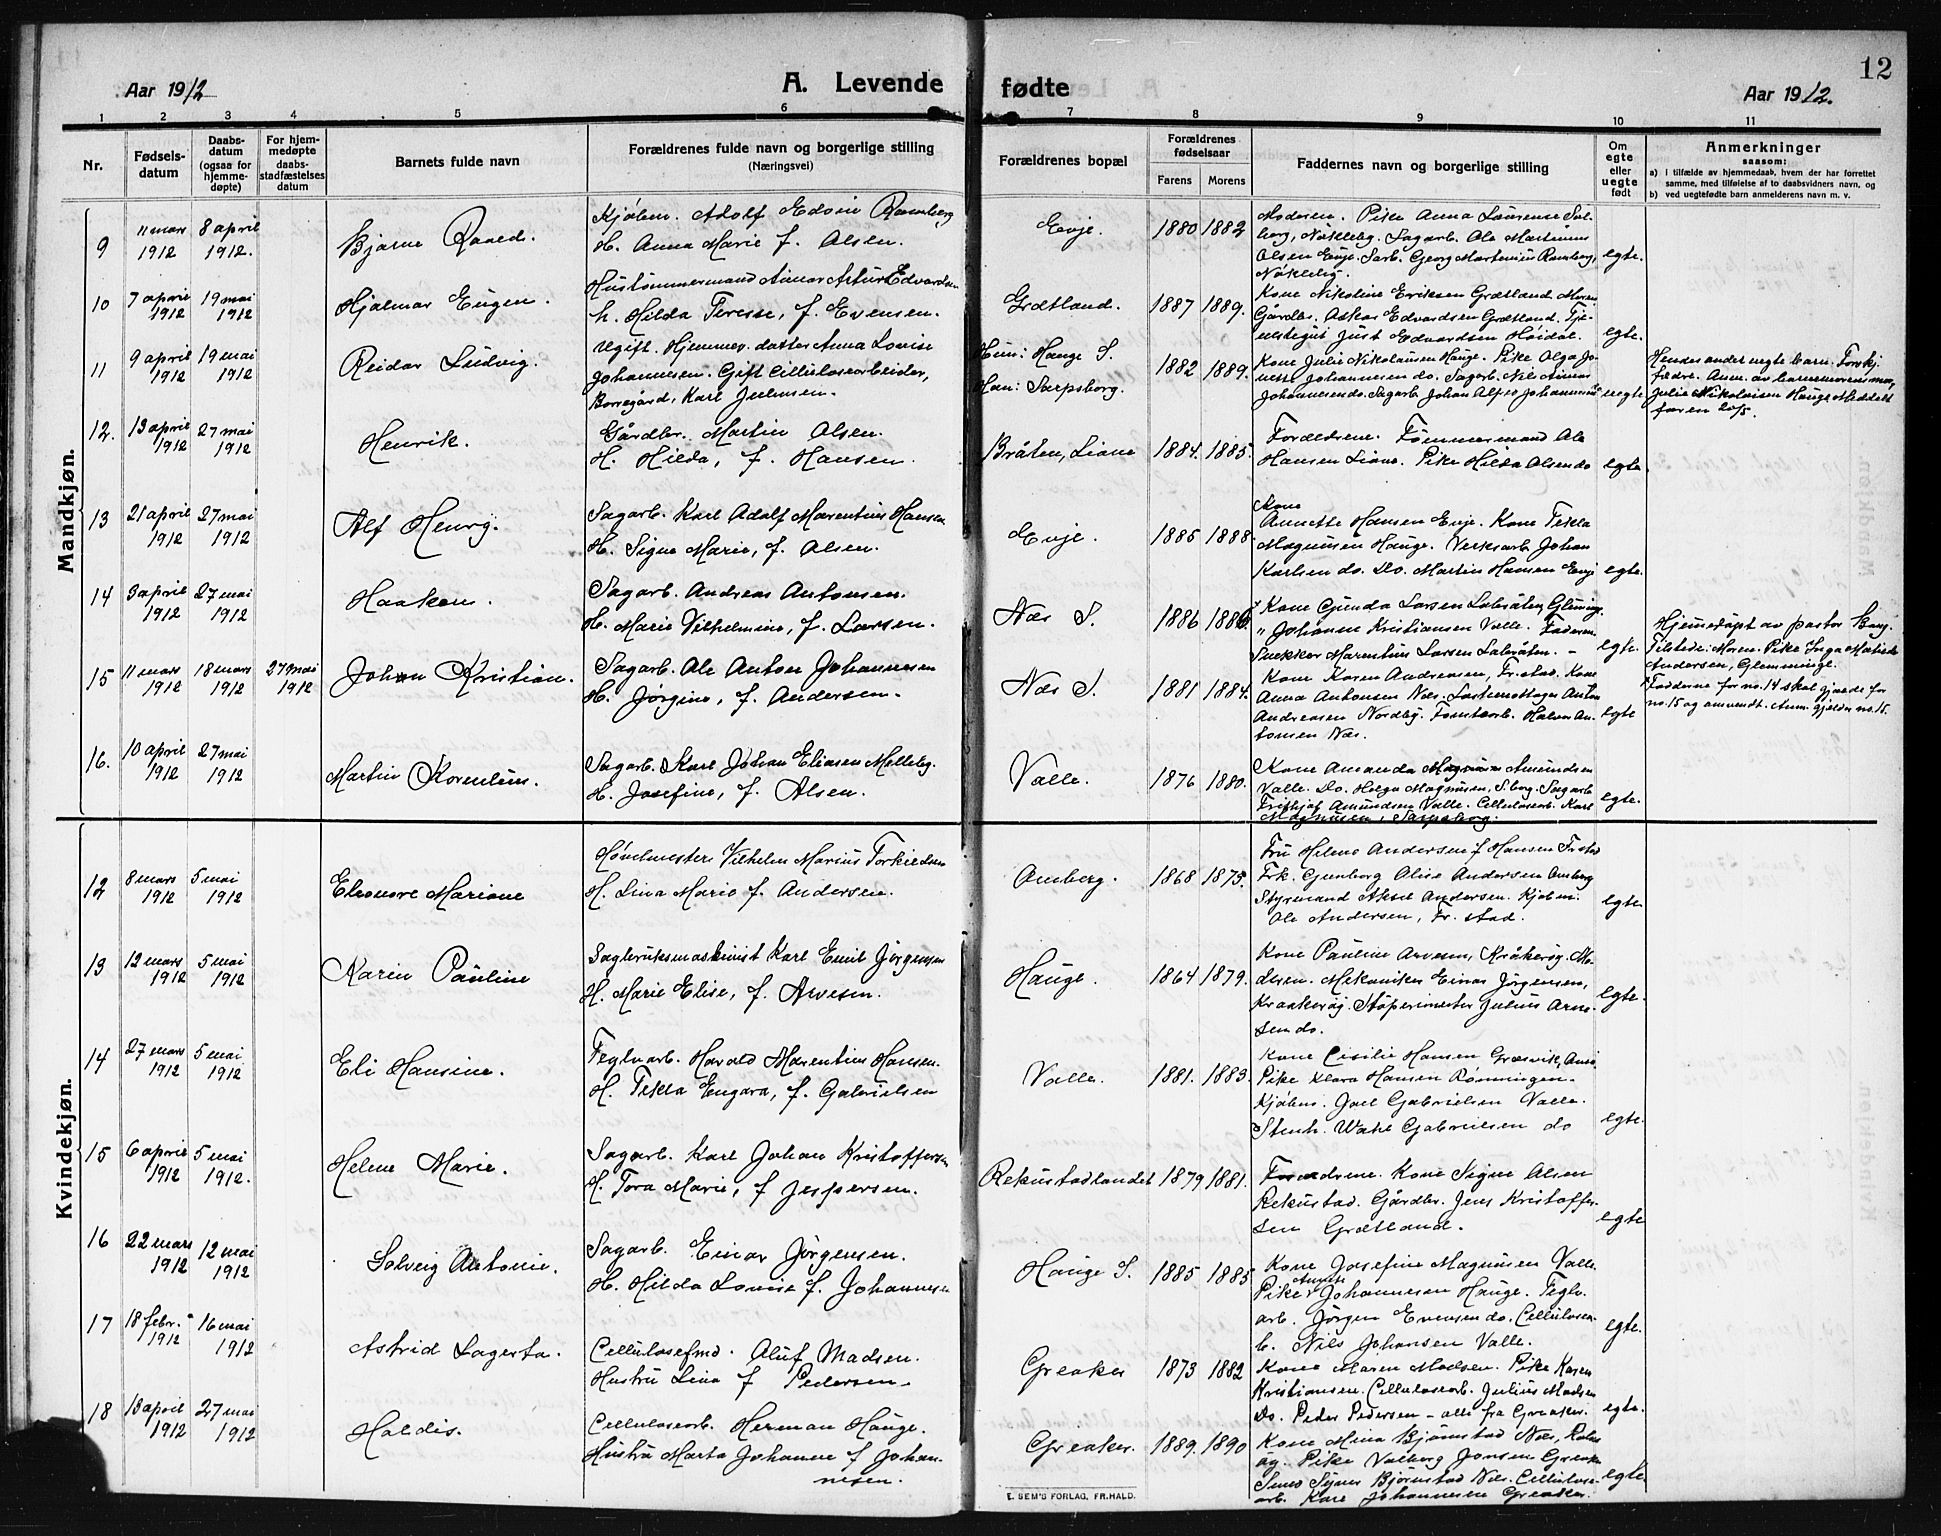 12
Aar 1912
A. Levende fødte
Aar 1912.
1 2 3 4 5 6 7 8 9 10 11
Nr.
Fødsels-
datum
Daabs-
datum
(ogsaa for
hjemme-
døpte)
For hjem-
medøpte
daabs-
stadfæstelses
datum
Barnets fulde navn
Forældrenes fulde navn og borgerlige stilling
(Næringsvei)
Forældrenes bopæl
Forældrenes
fødselsaar
Farens Morens
Faddernes navn og borgerlige stilling
Om
egte
eller
uegte
født
Anmerkninger
saasom:
a) i tilfælde av hjemmedaab, hvem der har forrettet
samme, med tilføielse af to daabsvidners navn, og
b) ved uegtefødte barn anmelderens navn m. v.
Mandkjøn.
9
11 mars 1912
8 april 1912.
Bjarne Roald.
Kjøbm. Adolf Edvin Ramberg
H. Anna Marie f. Olsen.
Evje.
1880 1882
Moderen. Pike Anna Laurense Sol-
berg, Nøkleby. Sagarb. Ole Martinius
Olsen Evje. Sarb. Georg Martenius Ramberg,
Nøkleby.
egte.
10
7 april 1912
19 mai 1912
Hjalmar Eugen.
Hustømmermand Annar Artur Edvardsen
h. Hilda Terese, f. Evensen.
Grætland.
1887 1889.
Kone Nikoline Eriksen Grætland. Moren
Gårdbr. Oskar Edvardsen Grætland. Tje-
nestegut Just Edvardsen Høidal.
egte.
11
9 april 1912
19 mai 1912
Reidar Ludvig.
Ugift. Hjemmev. datter Anna Lovise
Johannesen. Gift Cellulosearbeider,
Borregård, Karl Julinsen.
Hun: Hauge S.
Han: Sarpsborg.
1882 1889.
Kone Julie Nikolausen Hauge. Pike Olga Jo-
Johannesen do. Sagarb. Nils Annar
Johannesen do. Sagarb. Johan Alfred Johannesen
uegte
Hendes andet uegte barn. Forskj.
fædre. Anm. av barnemorens mor,
Julie Nikolaisen Hauge. Meddelt
faren 20/5.
12.
13 april 1912
27 mai 1912
Henrik.
Gårdbr. Martin Olsen.
H. Hilda, f. Hansen.
Bråten, Liane
1884. 1885.
Forældrene. Tømmermand Ole
Hansen Liane. Pike Hilda Olsen do
egte.
13
21 april 1912
27 mai 1912
Alf Henry.
Sagarb. Karl Adolf Marentius Hansen
H. Signe Marie, f. Olsen.
Evje.
1885 1888.
Kone
Annette Hansen Evje. Kone Tekla
Magnusen Hauge. Verksarb. Johan
Karlsen do. Do. Martin Hansen Evje
egte.
14
3 april 1912
27 mai 1912
Haakon.
Sagarb. Andreas Antonsen.
H. Marie Vilhelmine, f. Larsen.
Næs S.
1886 1886.
Kone Gunda Larsen Labråten, Glemminge.
" Johanne Kristiansen Valle. Faderen.
Snekker Marentius Larsen Labråten. –
egte.
15
11 mars 1912
18 mars 1912
27 mai 1912
Johan Kristian.
Sagarb. Ole Anton Johannesen
H. Jørgine, f. Andersen.
Næs S.
1881 1884.
Kone Karen Andreasen, Fr.stad. Kone
Anna Antonsen Næs. Lastemottager Anton
Andreasen Nordby. Tomtearb. Halvor An-
tonsen Næs.
egte
Hjemmedøpt av pastor Bang.
Tilstede: Moren. Pike Inga Matilde
Andersen, Glemminge.
Fadderne for no. 14 skal gjælde for
no. 15 og omvendt. Anm. gjælder no. 15.
16.
10 april 1912
27 mai 1912
Martin Kornelius.
Sagarb. Karl Johan Eliasen Melleby.
H. Josefine, f. Olsen.
Valle.
1876 1880.
Kone Amanda Magnusen Amundsen
Valle. Do. Helga Magnusen, S.borg. Sagarb.
Fridtjof Amundsen Valle. Cellulosearb. Karl
Magnusen, Sarpsborg.
egte.
Kvindekjøn.
12
8 mars 1912
5 mai 1912
Eleonore Mariane
Høvelmester Vilhelm Marius Torkildsen
H. Lina Marie f. Andersen.
Omberg.
1868 1875.
Fru Helene Andersen f Hansen Fr.stad
Frk. Gunborg Olise Andersen Omberg
Styrmand Aksel Andersen. Kjøbm.
Ole Andersen, Fr. stad.
egte.
13
12 mars 1912
5 mai 1912
Karin Pauline
Sagbruksmaskinist Karl Emil Jørgensen
H. Marie Elise, f. Arvesen.
Hauge.
1864 1879.
Kone Pauline Arvesen, Kråkerøy. Mo-
deren. Mekaniker Einar Jørgensen,
Kraakerøy. Støperimester Julius Arve-
sen do.
egte.
14
27 mars 1912
5 mai 1912
Eli Hansine.
Teglv.arb. Harald Marentius Hansen.
H. Tekla Engara, f. Gabrielsen
Valle.
1881. 1883.
Kone Cisilie Hansen Græsvik, Onsø
Pike Klara Hansen Rønningen.
Kjøbm. Joel Gabrielsen Valle.
Stenh. Gabrielsen do
egte.
15
6 april 1912
5 mai 1912.
Helene Marie.
Sagarb. Karl Johan Kristoffersen
H. Tora Marie, f Jespersen.
Rekustadlandet
1879 1881.
Forældrene. Kone Signe Olsen
Rekustad. Gårdbr. Jens Kristoffer-
sen Grætland.
egte
16
22 mars 1912
12 mai 1912
Solveig Antonie.
Sagarb. Einar Jørgensen.
H. Hilda Lovise f. Johannesen
Hauge S.
1885 1885
Kone Josefine Magnusen Valle.
Pike Johannesen Hauge. Teglv.
arb. Jørgen Evensen do. Cellulosear-
b. Nils Johansen Valle.
egte.
17
18 febr. 1912
16 mai 1912
Astrid Lagerta.
Cellulosefmd. Oluf Madsen.
Hustru Lina f Pedersen.
Greaker
1873 1882
Kone Maren Madsen. Pike Karen
Kristiansen. Cellulosearb. Julius Madsen
Do. Peder Pedersen – alle fra Greaker.
egte.
18
13 april 1912
27 mai 1912
Haldis.
Cellulosearb. Herman Hauge.
Hustru Marta Johanne f Johan-
nesen.
Greaker.
1889. 1890
Kone Mina Bjørnstad Næs, Rolvs-
øy. Pike Valborg Jonsen Greaker
Bjørnstad Næs. Cellulose-
arb. Kare Johannesen Greaker.
egte.
E. SEM'S FORLAG, FR.HALD.